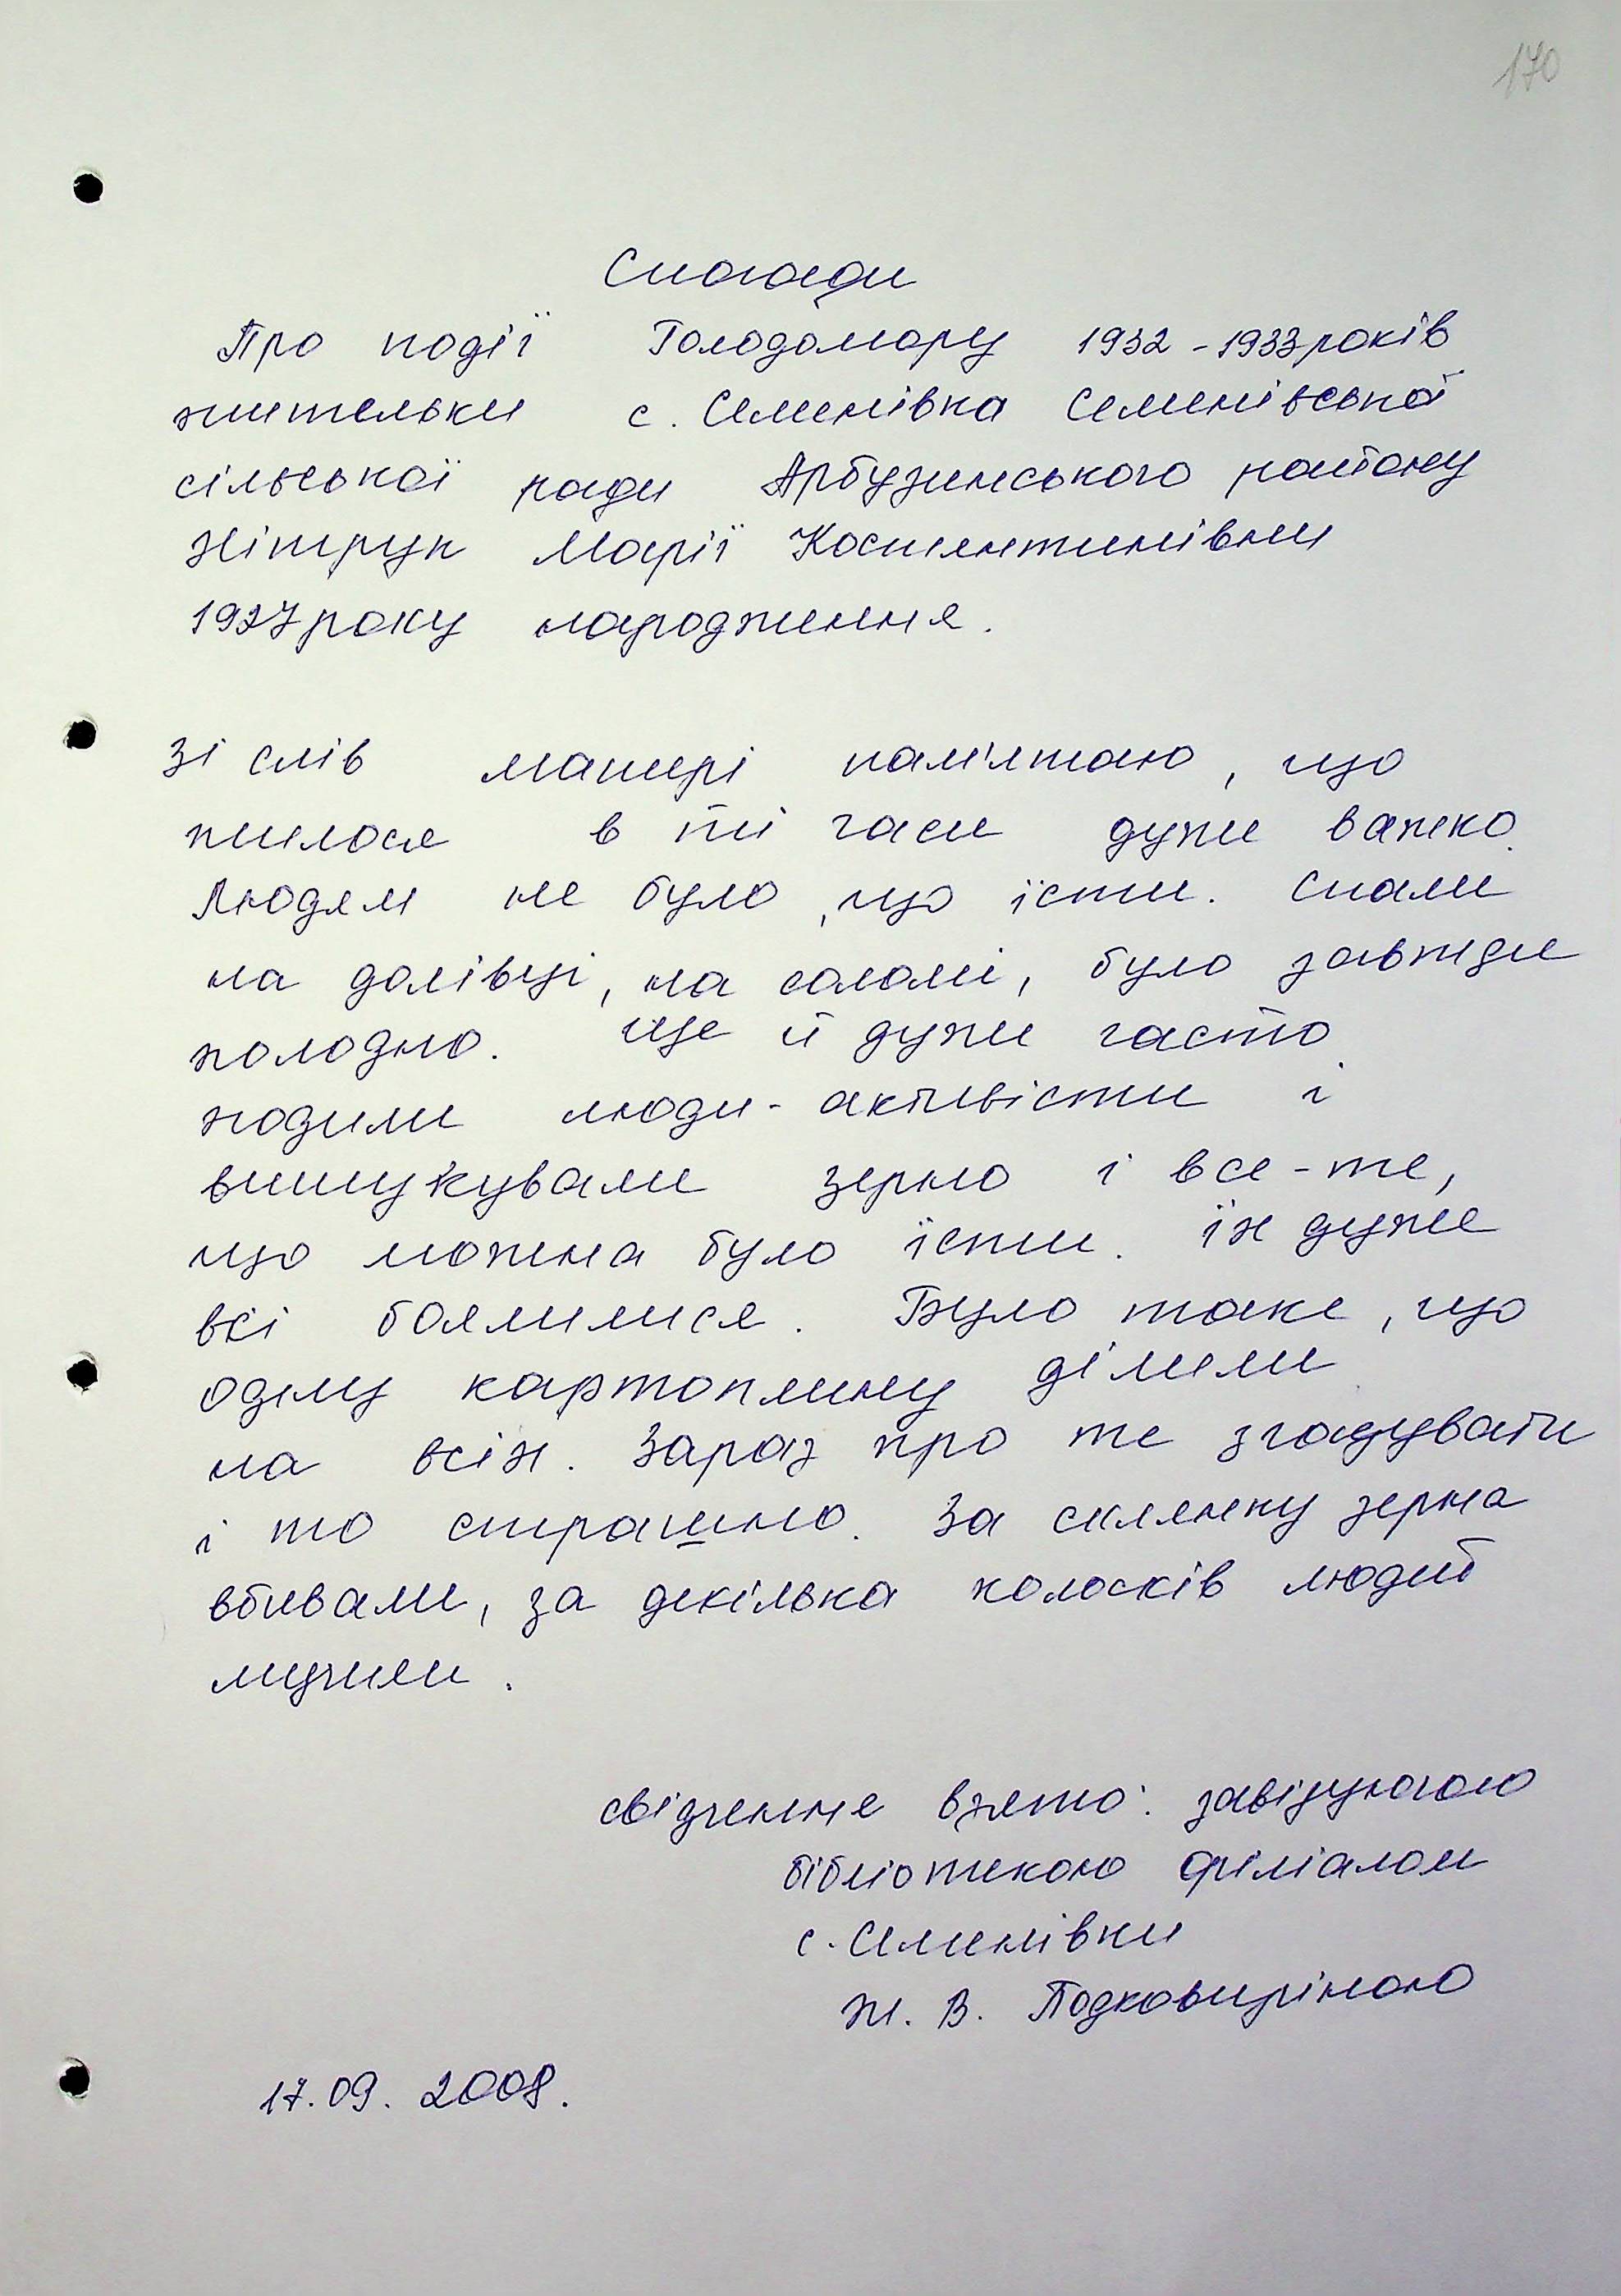 170
Спогади
Про події Голодомору 1932-1933 років
жительки с. Семенівка Семенівської
сільської ради Арбузинського району
Марії Костянтинівни
1927 року народження.
Зі слів матері пам'ятаю, що
жилося в ті часи дуже важко.
Людям не було, що їсти. Спали
на долівці, на соломі, було завжди
холодно. Ще й дуже часто
ходили люди-активісти і
вишукували зерно і все-те,
що можна було їсти. Їх дуже
всі боялилися. Було таке, що
одну картоплину ділили
на всіх. Зараз про те згадувати
і то страшно. За склянку зерна
вбивали, за декілька колосків людей
мучили.
свідчення взято: завідуючою
бібліотекою філіалом
с. Семенівки
Ж. В. Подковиріною
17.09.2008.